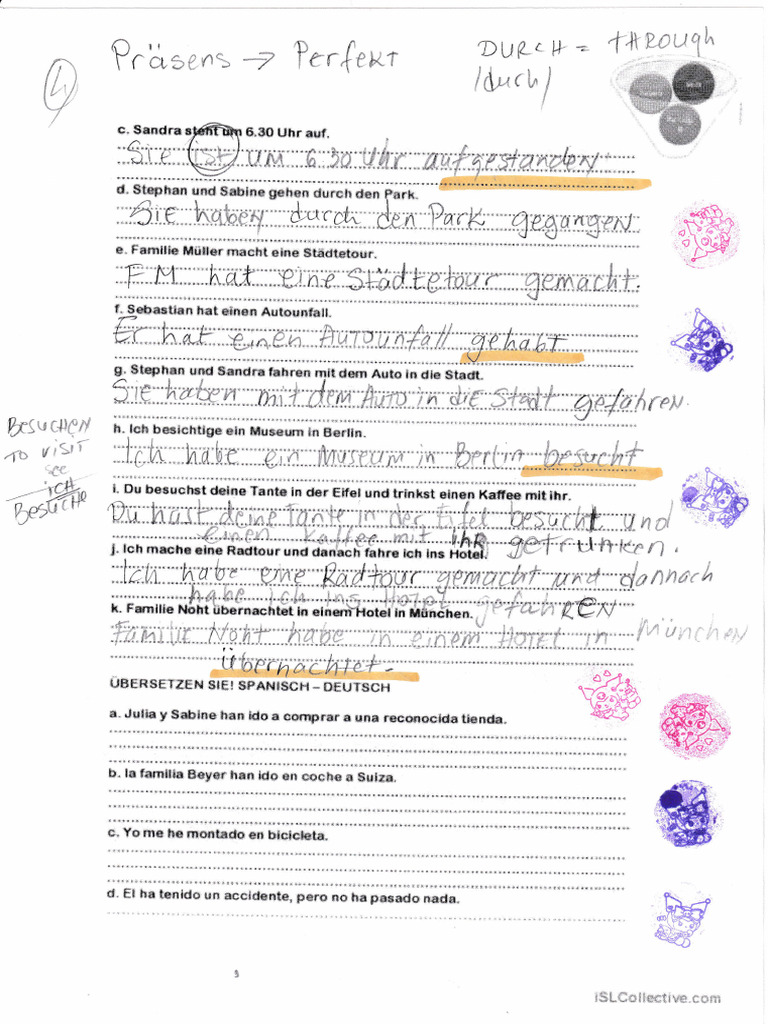 Präsens → Perfekt
DURCH = THROUGH
/durch/
4
c. Sandra steht um 6.30 Uhr auf.
Sie ist um 6 30 Uhr aufgestanden
d. Stephan und Sabine gehen durch den Park.
Sie haben durch den Park gegangen
e. Familie Müller macht eine Städtetour.
FM hat eine Städtetour gemacht.
f. Sebastian hat einen Autounfall.
Er hat einen Autounfall gehabt
g. Stephan und Sandra fahren mit dem Auto in die Stadt.
Sie haben mit dem Auto in die Stadt gefahren.
h. Ich besichtige ein Museum in Berlin.
Ich habe ein Museum in Berlin besucht
BESUCHEN
TO VISIT
see
ich
BESUCHE
i. Du besuchst deine Tante in der Eifel und trinkst einen Kaffee mit ihr.
Du hast deine Tante in der Eifel besucht und
einen Kaffee mit ihr getrunken.
j. Ich mache eine Radtour und danach fahre ich ins Hotel.
Ich habe eine Radtour gemacht und dannach
habe ich ins Hotel gefahREN
k. Familie Noht übernachtet in einem Hotel in München.
Familie Noht habe in einem Hotel in München
übernachtet-
ÜBERSETZEN SIE! SPANISCH – DEUTSCH
a. Julia y Sabine han ido a comprar a una reconocida tienda.
b. la familia Beyer han ido en coche a Suiza.
c. Yo me he montado en bicicleta.
d. El ha tenido un accidente, pero no ha pasado nada.
iSLCollective.com